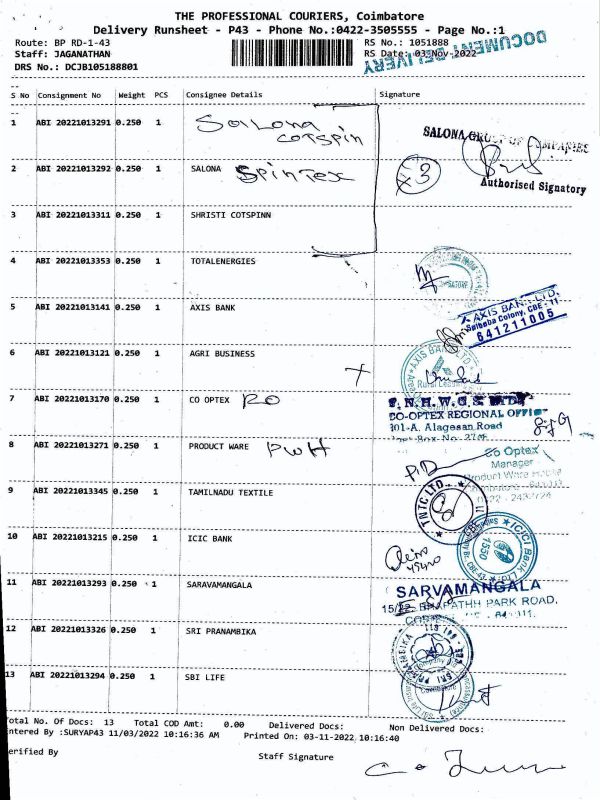 THE PROFESSIONAL COURIERS, Coimbatore
Delivery Runsheet - P43 - Phone No.:0422-3505555 - Page No.:1
Route: BP RD-1-43
RS No.: 1051888
Staff: JAGANATHAN
RS Date: 03-Nov-2022
DRS No.: DCJB105188801
DOCUMENT DELIVERY
S No Consignment No Weight PCS Consignee Details Signature
1 ABI 20221013291 0.250 1 Salona
cotspin
SALONA GROUP OF COMPANIES
Authorised Signatory
2 ABI 20221013292 0.250 1 SALONA Spintex
x3
3 ABI 20221013311 0.250 1 SHRISTI COTSPINN
4 ABI 20221013353 0.250 1 TOTALENERGIES
5 ABI 20221013141 0.250 1 AXIS BANK
AXIS BANK LTD.
Saibaba Colony, CBE - 11
641211005
6 ABI 20221013121 0.250 1 AGRI BUSINESS
AXIS BANK
7 ABI 20221013170 0.250 1 CO OPTEX RO
CO-OPTEX REGIONAL OFFICE
101-A, Alagesan Road
Post Box No. 2706
8 ABI 20221013271 0.250 1 PRODUCT WARE PWH
Co Optex
Manager
Product Ware
9 ABI 20221013345 0.250 1 TAMILNADU TEXTILE
TNTC LTD.
10 ABI 20221013215 0.250 1 ICIC BANK
ICICI Bank Ltd
1550
11 ABI 20221013293 0.250 1 SARAVAMANGALA
SARVAMANGALA
15/22, BHARATHI PARK ROAD,
12 ABI 20221013326 0.250 1 SRI PRANAMBIKA
13 ABI 20221013294 0.250 1 SBI LIFE
Total No. Of Docs: 13 Total COD Amt: 0.00 Delivered Docs: Non Delivered Docs:
ntered By :SURYAP43 11/03/2022 10:16:36 AM Printed On: 03-11-2022 10:16:40
erified By
Staff Signature